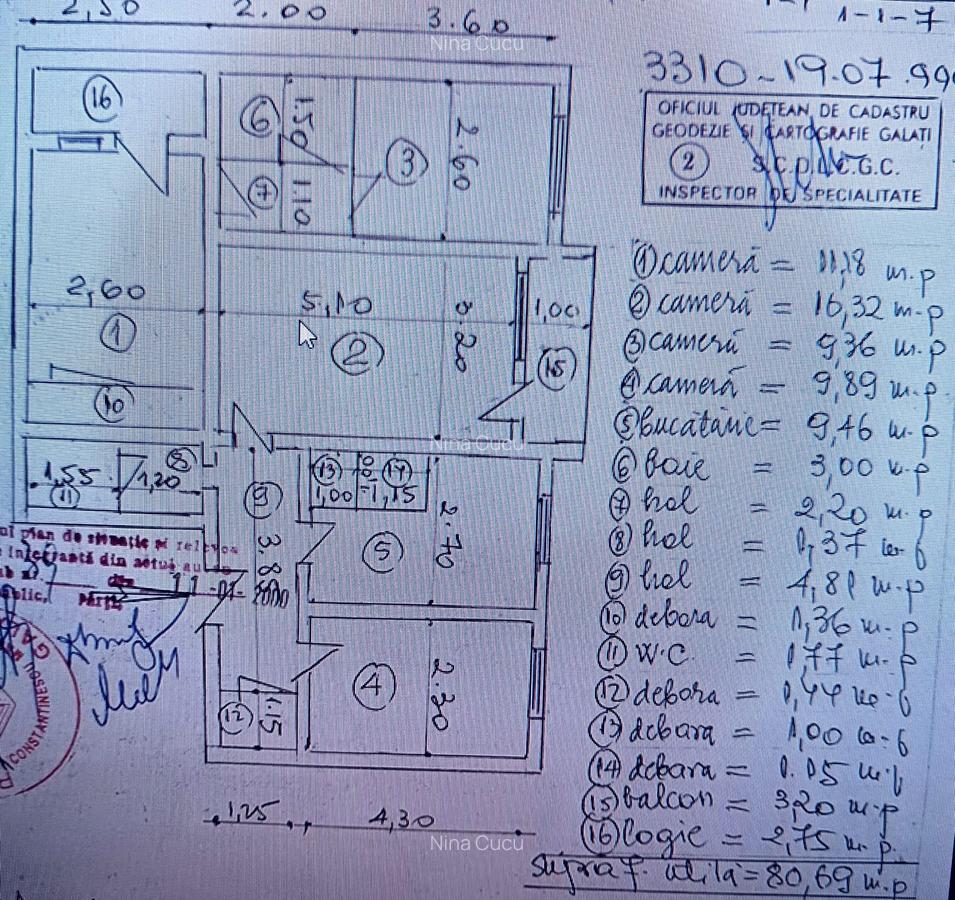 2,50 2.00 3.60
1-1-7
Nina Cucu
3310-19.07.99
OFICIUL JUDEȚEAN DE CADASTRU
GEODEZIE ȘI CARTOGRAFIE GALAȚI
2
INSPECTOR DE SPECIALITATE
16
6 1.50
3 2.60
7 1.10
2,60
1
5,10
2
1,00
15
10
Nina Cucu
8
1,55 1,20
11
9
3.8
13 14
1,00 1,15
5
2.70
4
2.30
12 1.15
1,25 4,30
Nina Cucu
plan de situație și
integrantă din actul
CONSTANTINESCU
1 cameră = 11,18 m.p
2 cameră = 16,32 m-p
3 cameră = 9,36 m.p
4 cameră = 9,89 m.p
5 bucătărie = 9,46 m-p
6 baie = 3,00 m-p
7 hol = 2,20 m.p
8 hol =
9 hol = 4,81 m.p
10 debara = 1,36 m-p
11 W.C. = 1,77 m-p
12 debara =
13 debara = 1,00
14 debara =
15 balcon = 3,20 m-p
16 logie = 2,75 m.p.
Supraf. utilă = 80,69 m.p